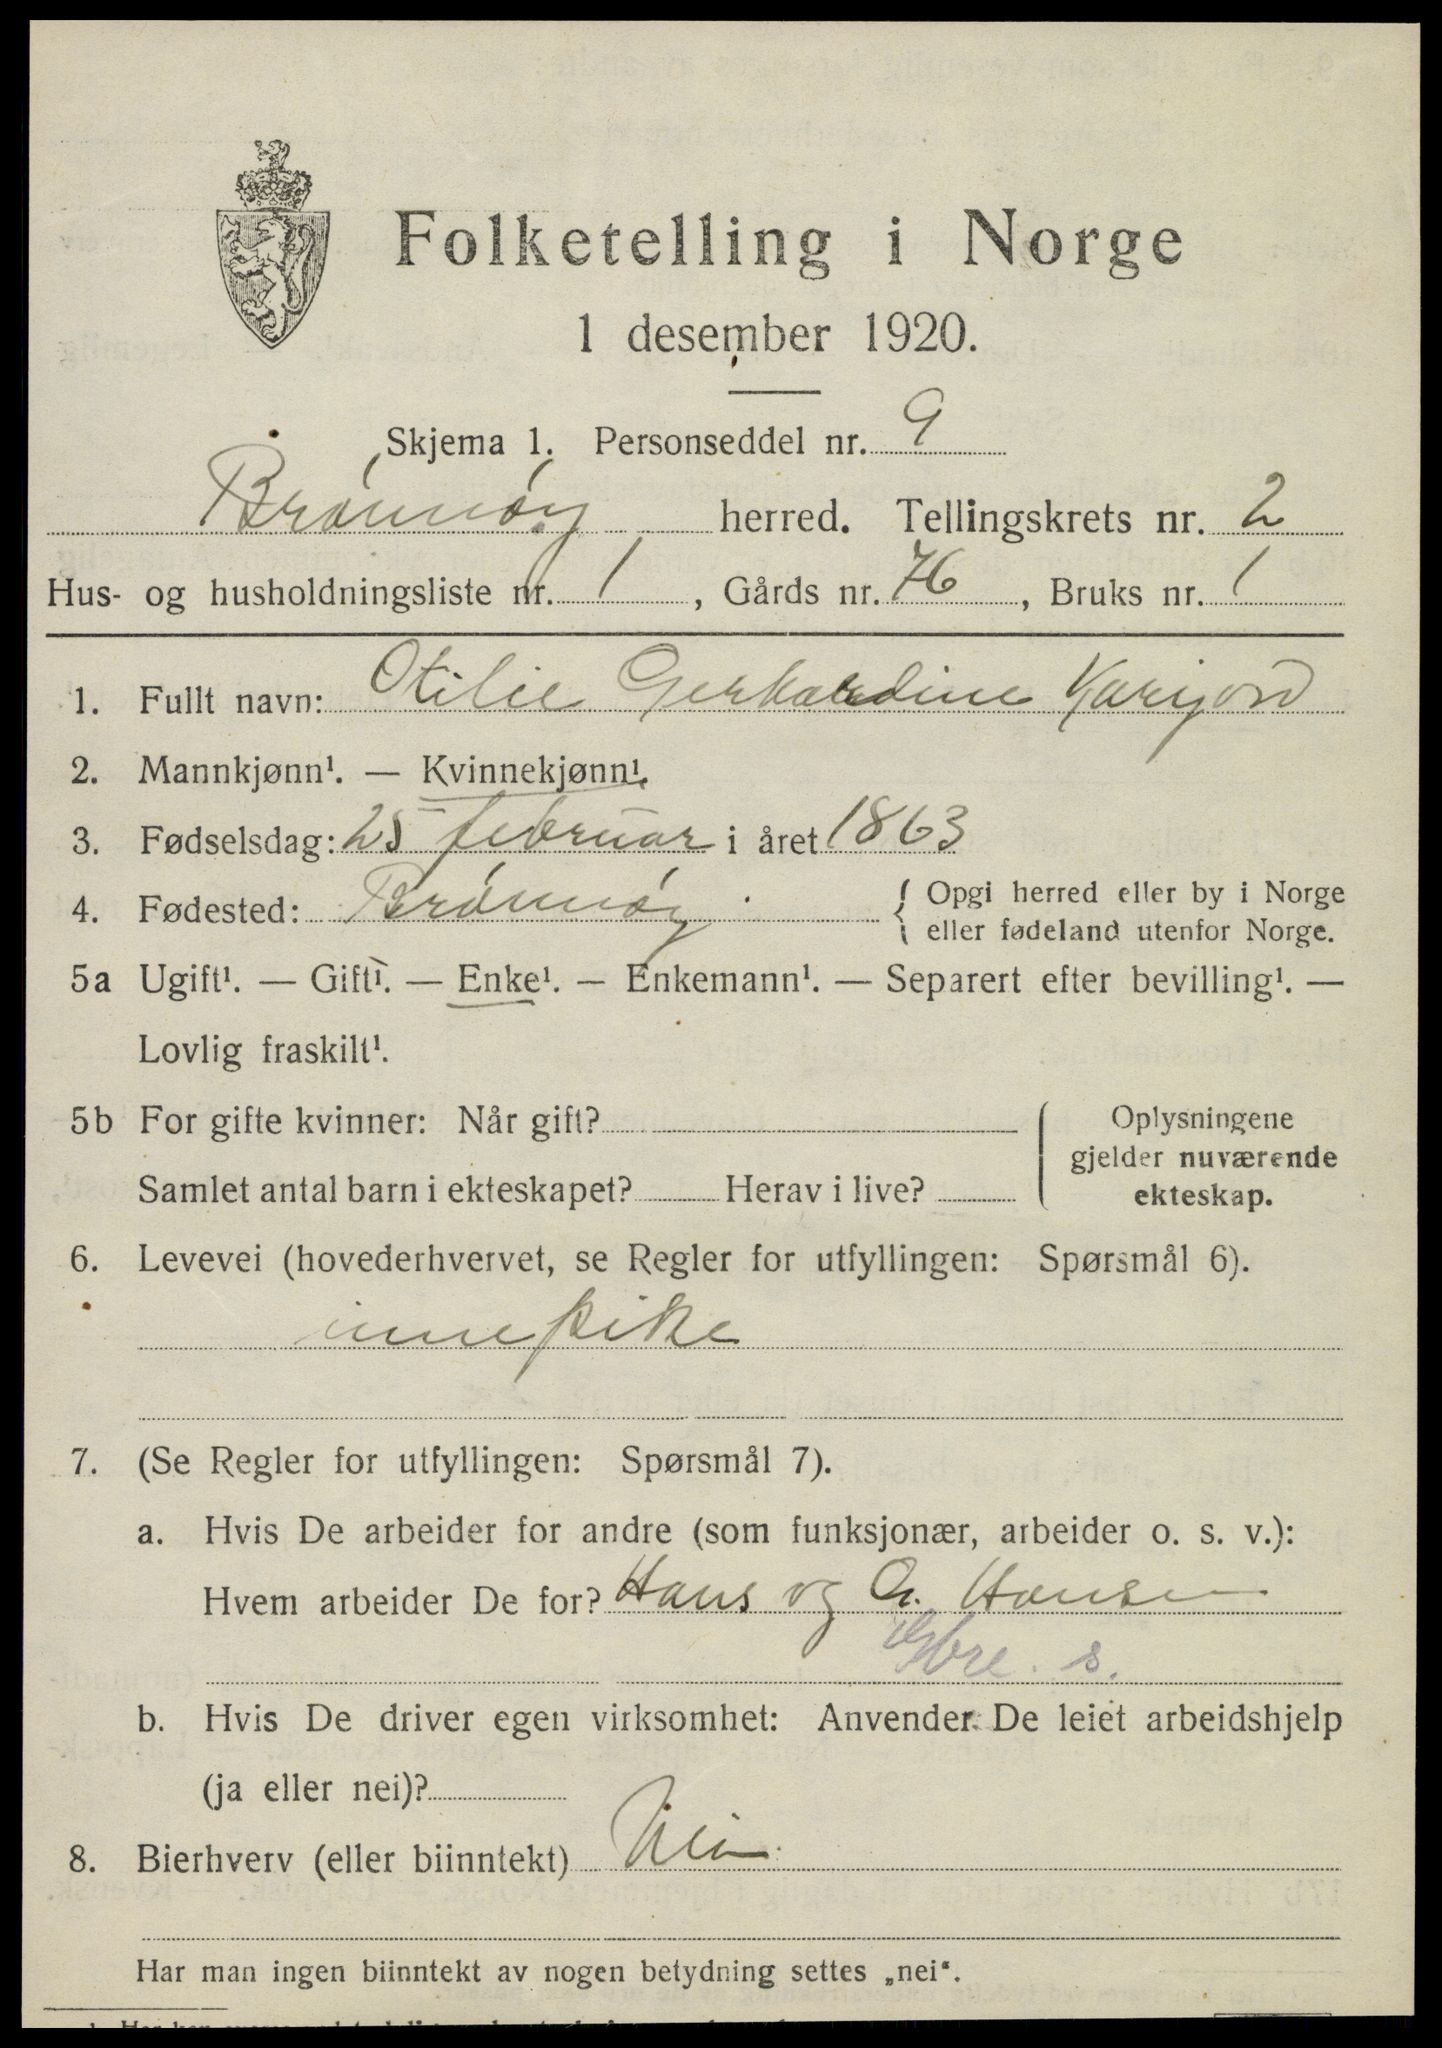 Folketelling i Norge
1 desember 1920.
Skjema 1. Personseddel nr. 9
Brønnøy herred. Tellingskrets nr. 2
Hus- og husholdningsliste nr. 1, Gårds nr. 76, Bruks nr. 1
1. Fullt navn: Otilie Gerhardine Karijord
2. Mannkjønn¹. — Kvinnekjønn¹.
3. Fødselsdag: 25 februar i året 1863
4. Fødested: Brønnøy { Opgi herred eller by i Norge
eller fødeland utenfor Norge.
5a Ugift¹. — Gift¹. — Enke¹. — Enkemann¹. — Separert efter bevilling¹. —
Lovlig fraskilt¹.
5b For gifte kvinner: Når gift?
Samlet antal barn i ekteskapet? Herav i live?
Oplysningene
gjelder nuværende
ekteskap.
6. Levevei (hovederhvervet, se Regler for utfyllingen: Spørsmål 6).
innepike
7. (Se Regler for utfyllingen: Spørsmål 7).
a. Hvis De arbeider for andre (som funksjonær, arbeider o. s. v.):
Hvem arbeider De for? Hans og A. Hansen
Gbre. s.
b. Hvis De driver egen virksomhet: Anvender De leiet arbeidshjelp
(ja eller nei)?
8. Bierhverv (eller biinntekt) Nei
Har man ingen biinntekt av nogen betydning settes „nei“.